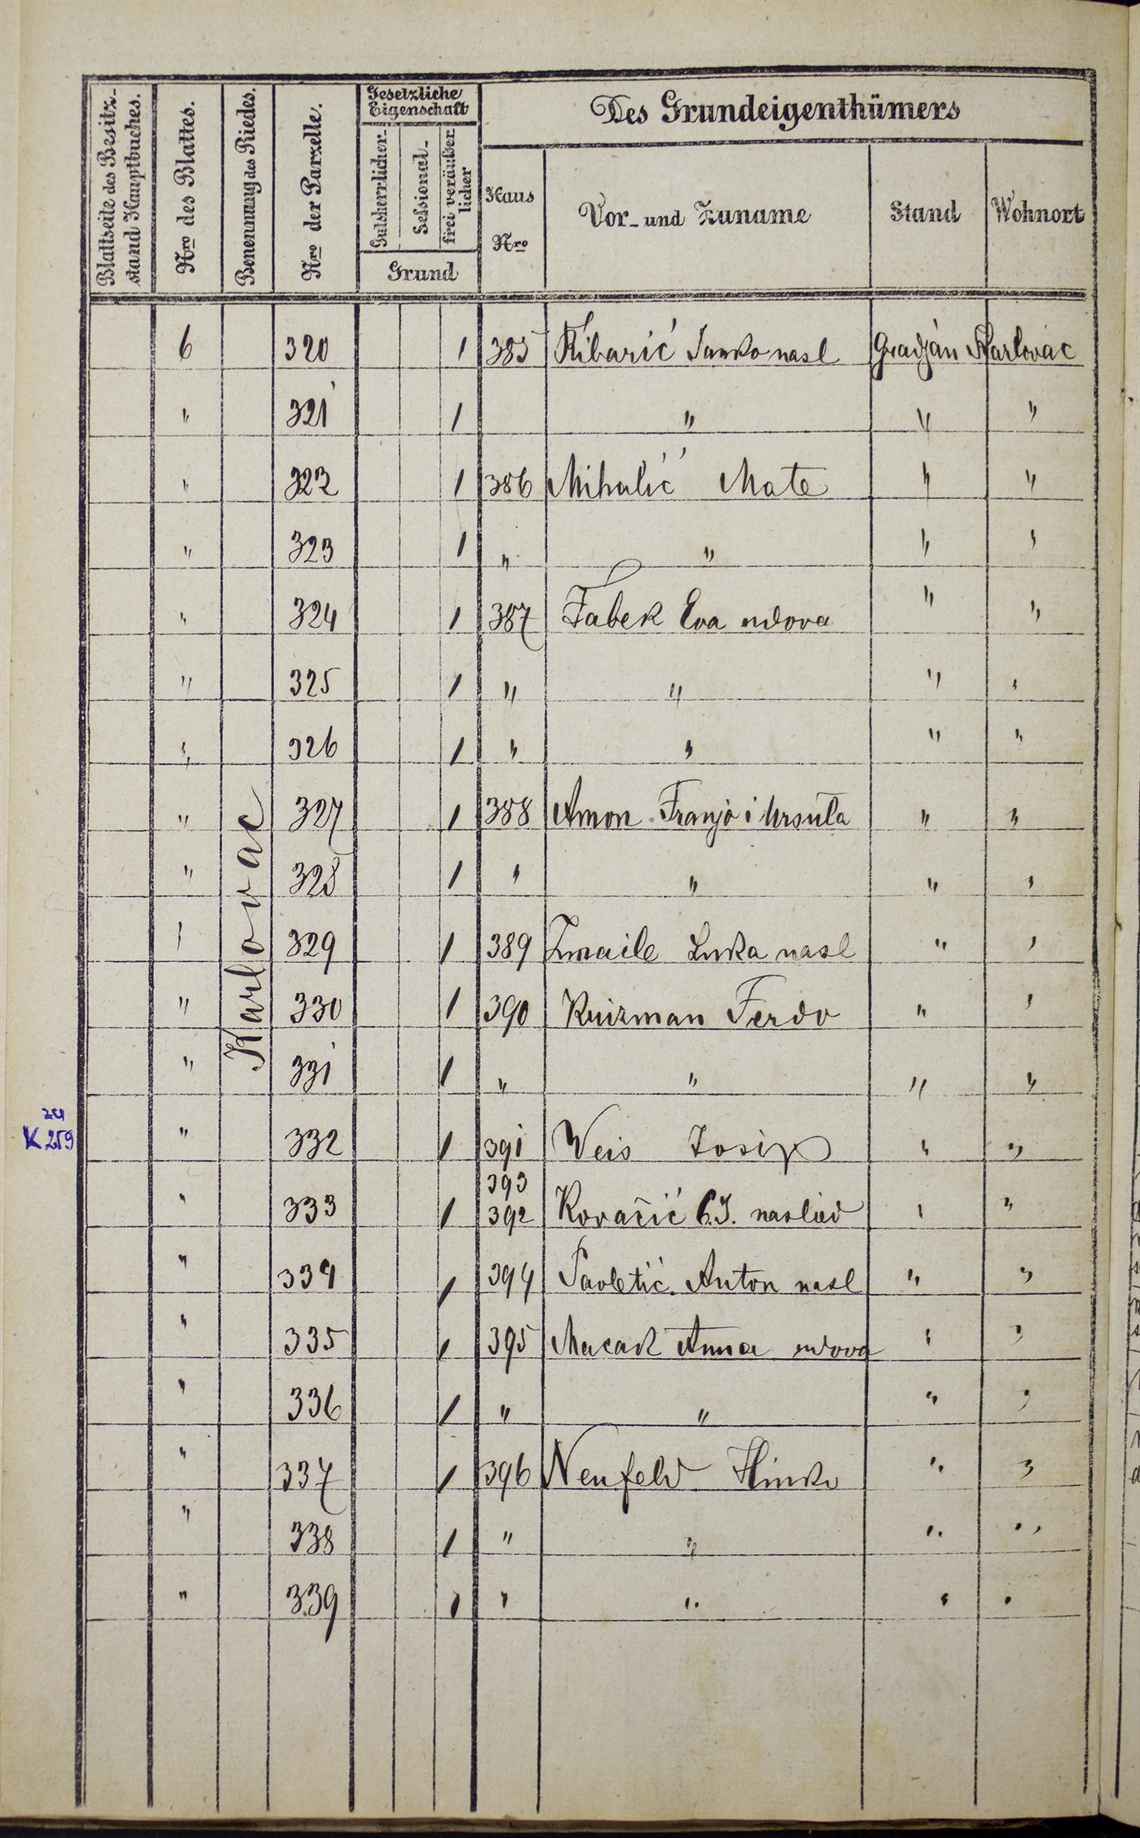 Blattseite des Besitz-
stand Hauptbuches.
Nro des Blattes.
Benennung des Riedes.
Nro der Parzelle.
Gesetzliche
Eigenschaft
Gutsherrlicher
Sessional-
frei veräußer
licher
Grund
Des Grundeigenthümers
Haus
Nro
Vor- und Zuname
Stand
Wohnort
Karlovac
6 320 1 385 Ribarić Janko nasl Gradjan Karlovac
" 321 1 " " "
" 322 1 386 Mihalić Mate " "
" 323 1 " " " "
" 324 1 387 Fabek Eva udova " "
" 325 1 " " " "
" 326 1 " " " "
" 327 1 388 Amon Franjo i Ursula " "
" 328 1 " " " "
" 329 1 389 Luka nasl " "
" 330 1 390 Ferdo " "
" 331 1 " " " "
K 259
" 332 1 391 Weis Josip " "
393
" 333 1 392 Kovačić naslied " "
" 334 1 394 Pavletić Anton nasl " "
" 335 1 395 Macak Anna udova " "
" 336 1 " " " "
" 337 1 396 Neufeld Hinko " "
" 338 1 " " " "
" 339 1 " " " "